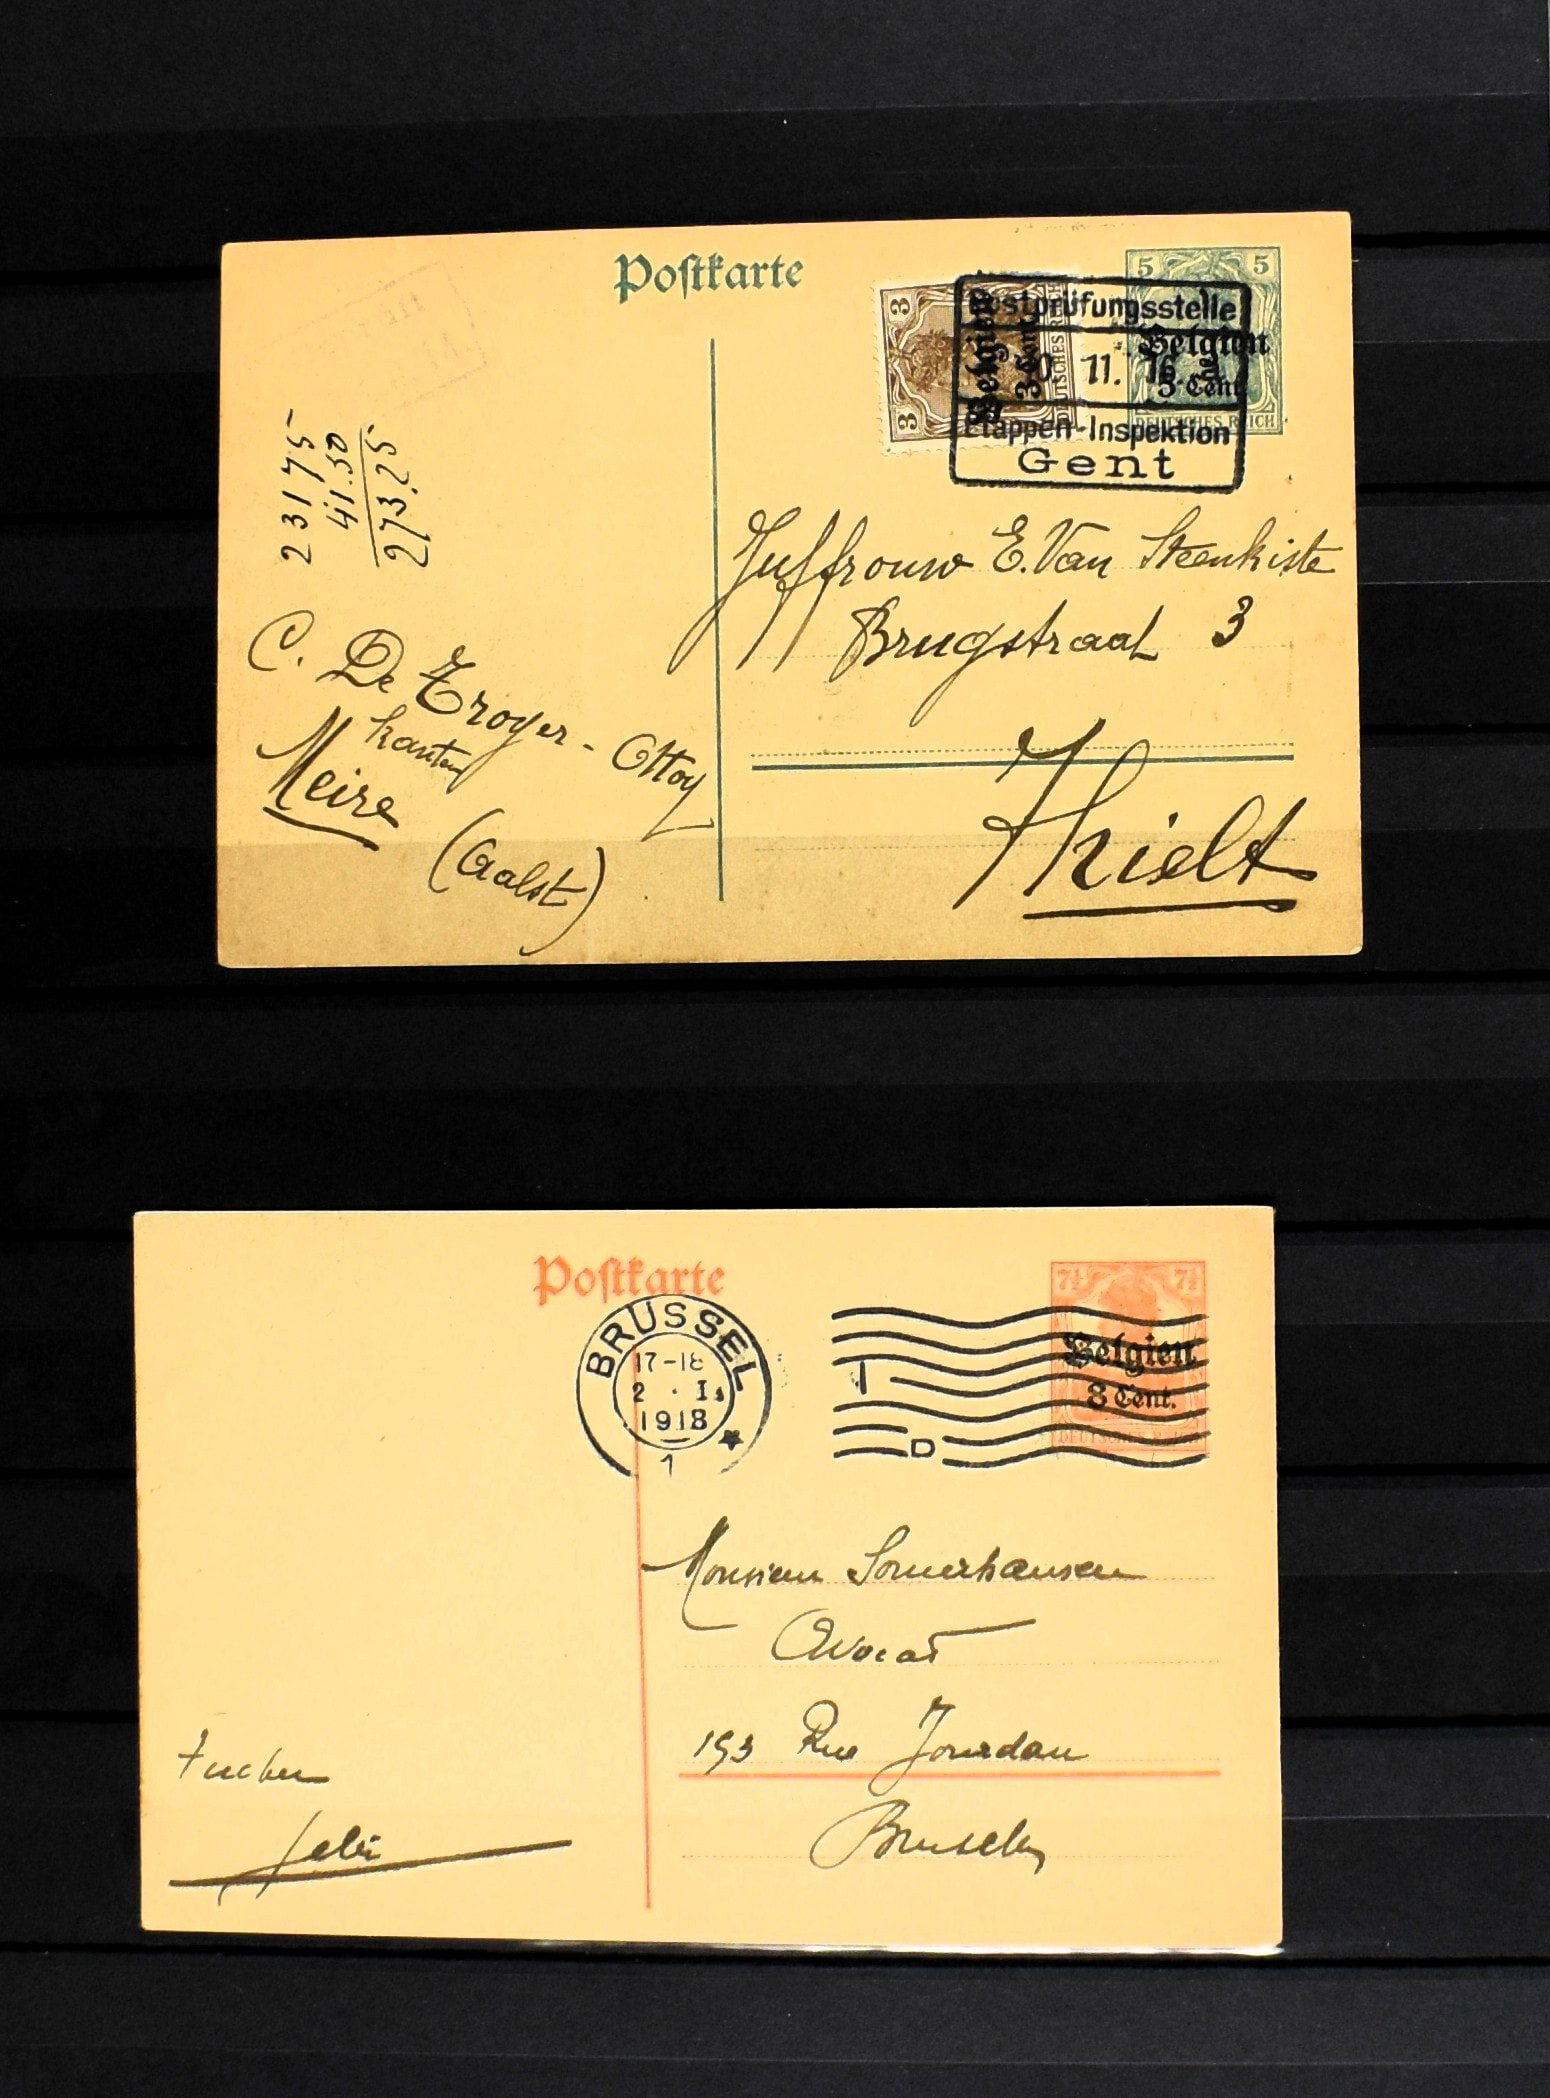 Postkarte
5 5
Belgien
5 Cent.
DEUTSCHES REICH
3 3
Belgien
3 Cent.
DEUTSCHES REICH
Postprüfungsstelle
11. 16.
Etappen-Inspektion
Gent
23175
41.50
273.25
Juffrouw E. Van Steenkiste
Brugstraat 3
Thielt
C. De Troyer - Ottoy
kanten
Meire
(Aalst)
Postkarte
7½ 7½
Belgien
8 Cent.
DEUTSCHES REICH
BRÜSSEL
17-18
2 . I.
1918
1
D
Monsieur Somerhausen
Avocat
193 Rue Jourdan
Bruxelles